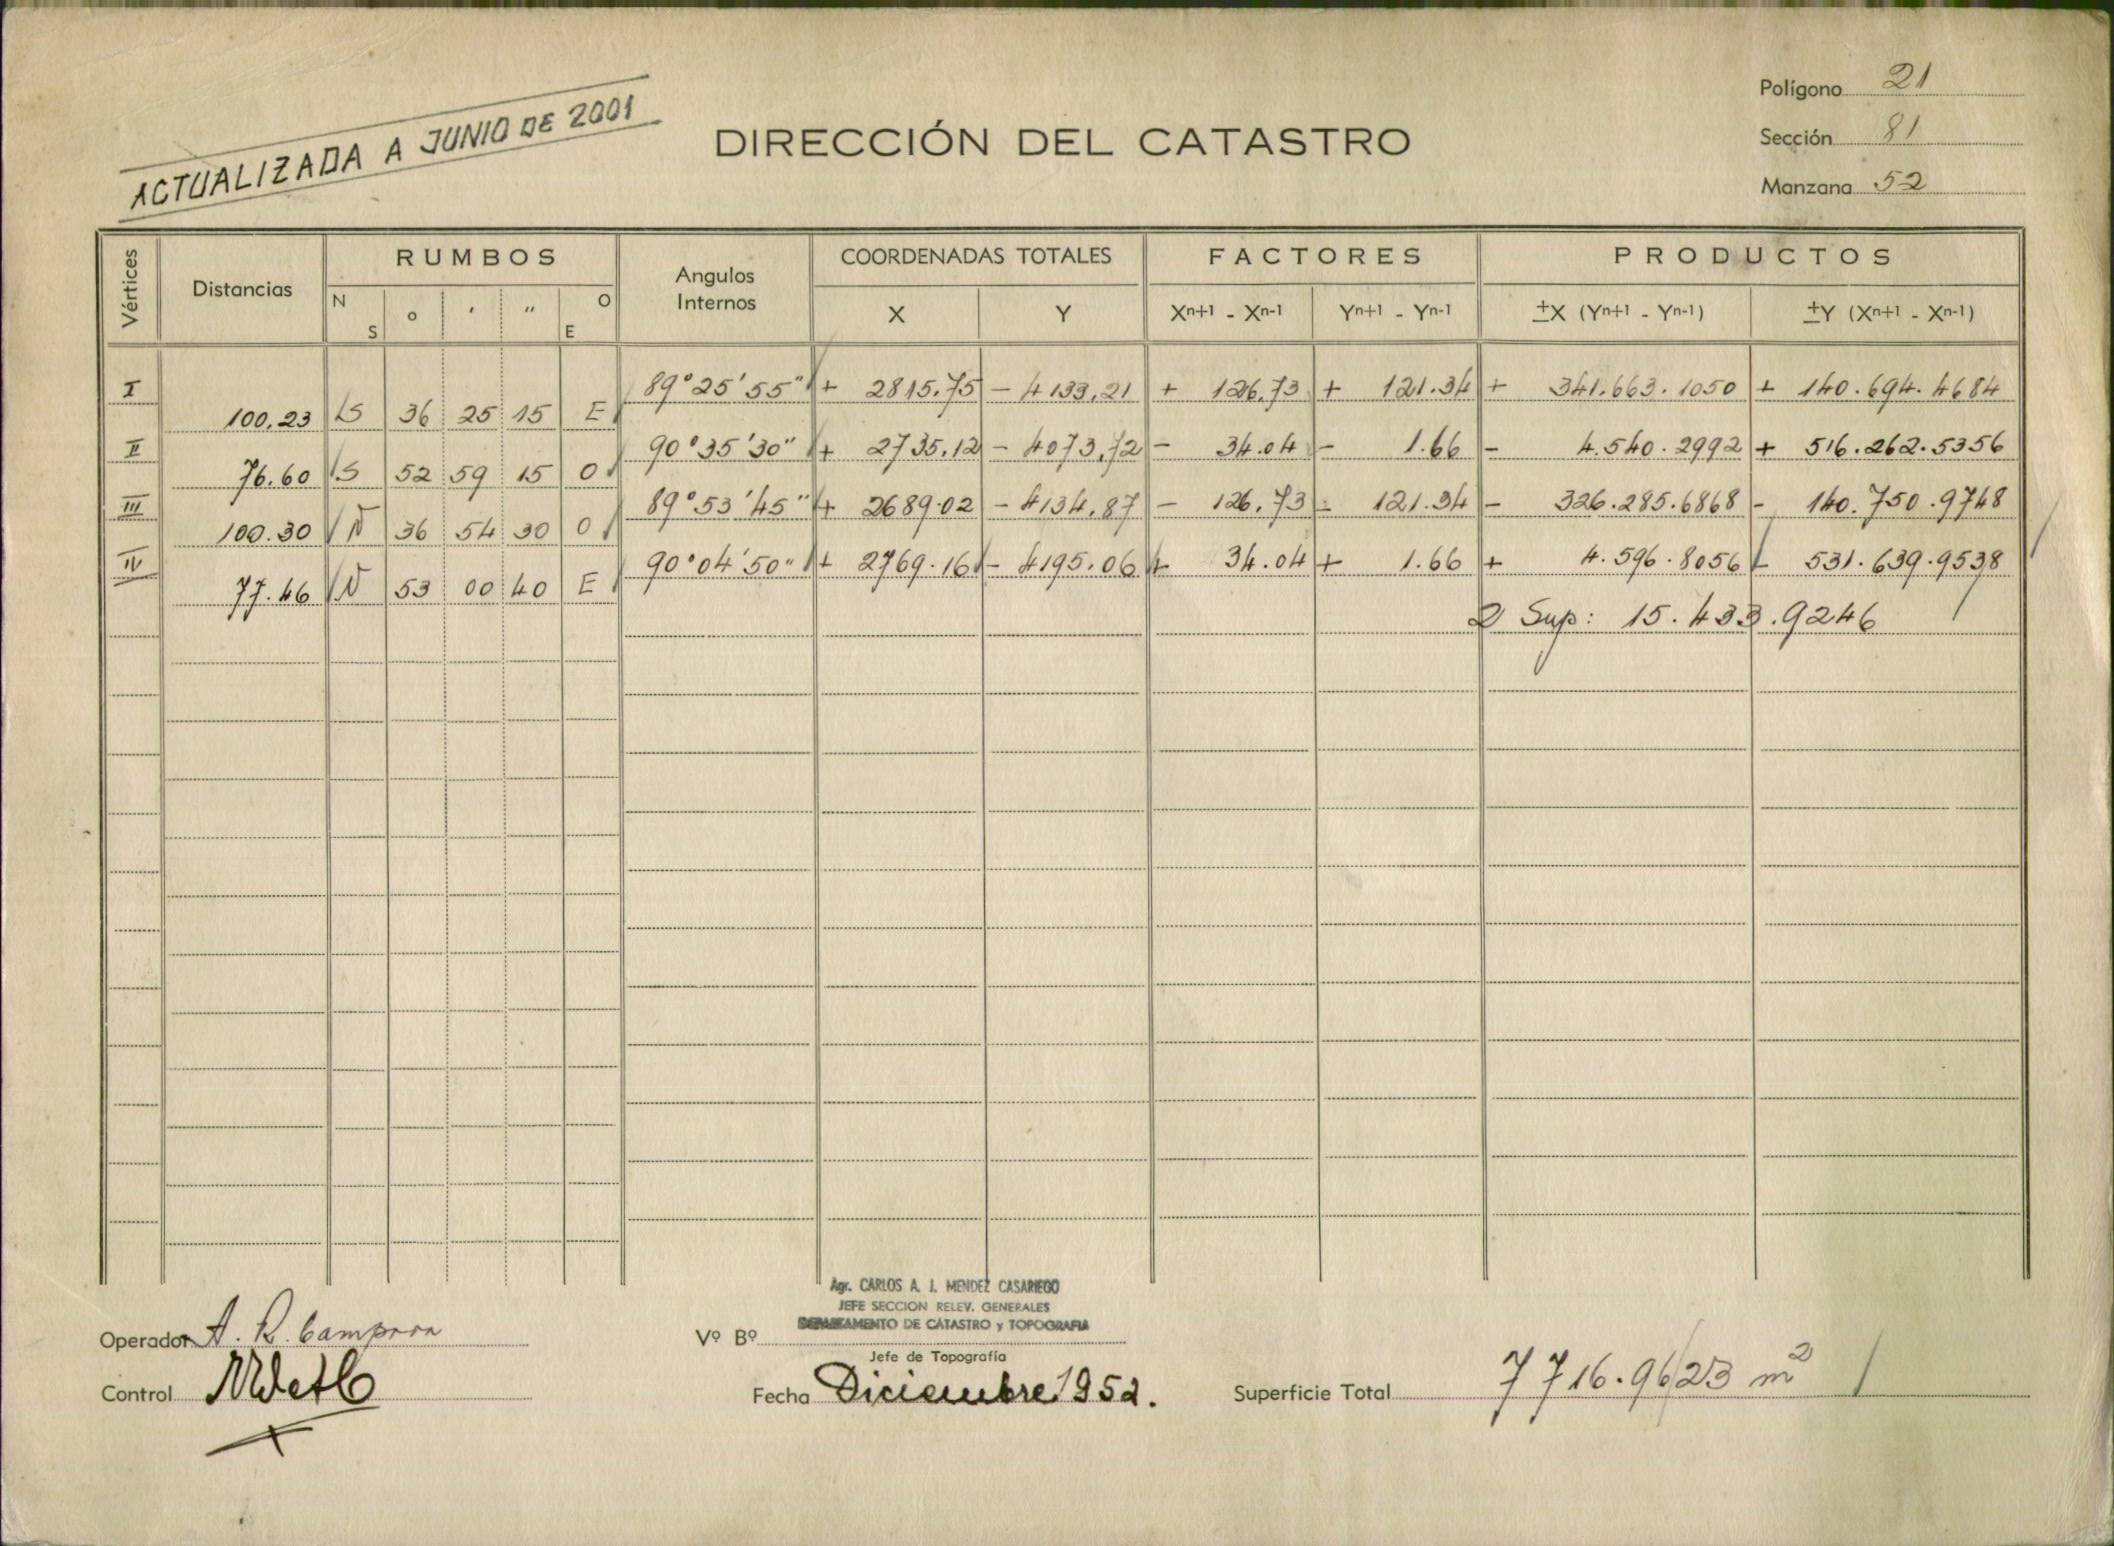 Polígono 21
ACTUALIZADA A JUNIO DE 2001
DIRECCIÓN DEL CATASTRO
Sección 81
Manzana 52
Vértices Distancias RUMBOS Angulos Internos COORDENADAS TOTALES FACTORES PRODUCTOS
N S o ' " O E X Y Xn+1 - Xn-1 Yn+1 - Yn-1 ±X (Yn+1 - Yn-1) ±Y (Xn+1 - Xn-1)
I 89°25'55" + 2815.75 - 4133,21 + 126.73 + 121.34 + 341.663.1050 + 140.694.4684
100,23 S 36 25 15 E
II 90°35'30" + 2735,12 - 4073,72 - 34.04 - 1.66 - 4.540.2992 + 516.262.5356
76.60 S 52 59 15 O
III 89°53'45" + 2689.02 - 4134,87 - 126.73 - 121.34 - 326.285.6868 - 140.750.9748
100.30 N 36 54 30 O
IV 90°04'50" + 2769.16 - 4195.06 + 34.04 + 1.66 + 4.596.8056 - 531.639.9538
77.46 N 53 00 40 E
2 Sup: 15.433.9246
Agr. CARLOS A. J. MENDEZ CASARIEGO
JEFE SECCION RELEV. GENERALES
DEPARTAMENTO DE CATASTRO y TOPOGRAFIA
Operador A. R.
Vº Bº
Jefe de Topografía
Control
Fecha Diciembre 1952.
Superficie Total 7716.9623 m2